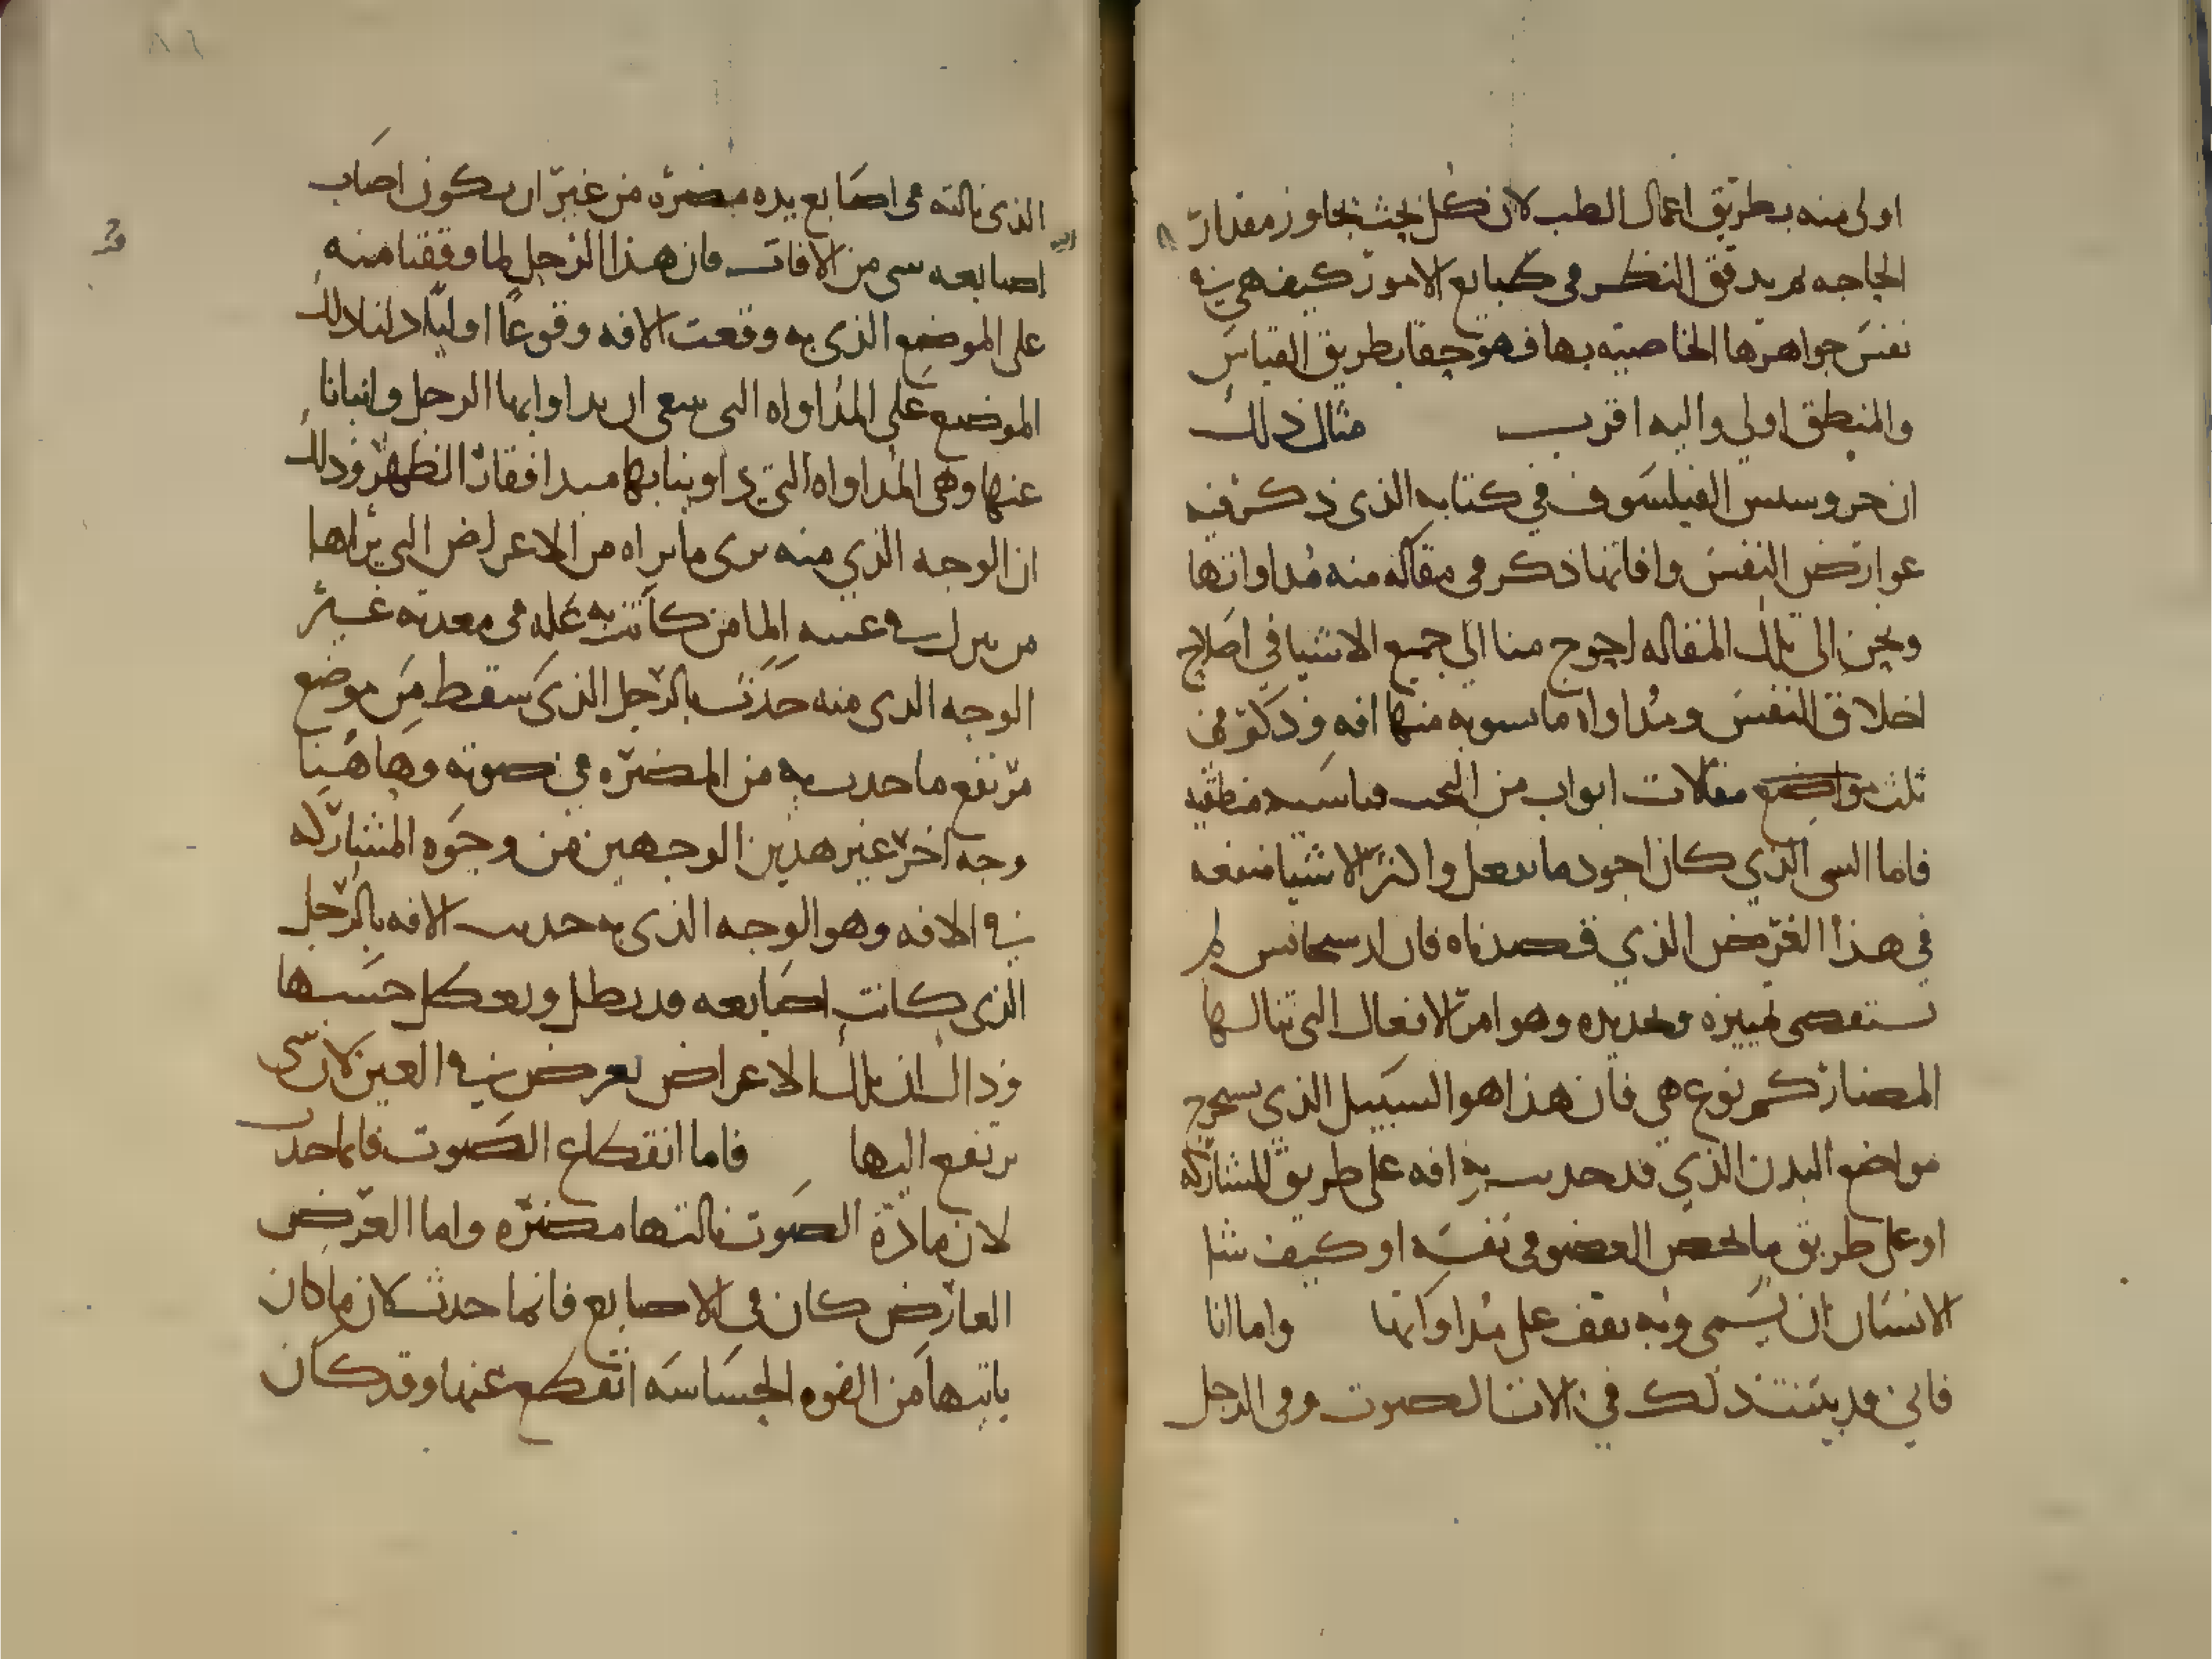 اولى منه بطريق اعمال الطب لان كل بحث تجاوز مقدار
الحاجه لم يدقق النظر في طبايع الامور كيف هي في
نفس جواهرها الخاصيه بها فهو حقا بطريق القياس
والمنطق اولى واليه اقرب مثال ذلك
ان حروسس الفيلسوف في كتابه الذي ذكر فيه
عوارض النفس وافاتها ذكر في مقاله منه مداواتها
ونحن الى تلك المقاله احوج منا الى جميع الاشيا في اصلاح
اخلاق النفس ومداواه ما منها افه وذكر في
ثلث مقالات ابواب من البحث قياسيه منطقيه
فاما الشي الذي كان اجود ما نفعل واكثر الاشيا منفعه
في هذا الغرض الذي قصدناه فان ارسحانس لم
يستقصي تمييزه وتحديده وهو امر الافعال التي تنالها
المضار كم نوع هي فان هذا هو السبيل الذي يستخرج
مواضع البدن الذي قد حدثت به افه على طريق المشاركه
او على طريق ما يخص العضو في نفسه او كيف شا
الانسان ان يسمي وبه نقف على مداواتها واما انا
فاني قد بينت ذلك في الات الصوت وفي الرجل
الذي نالته في اصابع يده مضره من غير ان يكون اصاب
اصابعه شي من الافات فان هذا الرجل لما وقفنا منه
على الموضع الذي به وقعت الافه وقوعا اوليا دلنا ذلك
الموضع على المداواه التي ينبغي ان يداوا بها الرجل وانبانا
عنها وهي المداواه التي داوينا بها مبدا فقار الظهر وذلك
ان الوجه الذي منه يرى ما يراه من الاعراض التي يراها
من ينزل في عينيه الما من كانت به عله في معدته غير
الوجه الذي منه حدثت بالرجل الذي سقط من موضع
مرتفع ما حدث به من المضره في صوته وهاهنا
وجه اخر غير هذين الوجهين من وجوه المشاركه
في الافه وهو الوجه الذي به حدثت الافه بالرجل
الذي كانت اصابعه قد بطل وتعطل حسها
وذاك ان تلك الاعراض تعرض في العين لان شي
يرتفع اليها فاما انقطاع الصوت فانما حدث
لان مادة الصوت نالتها مضره واما العرض
العارض كان في الاصابع فانما حدث لان ما كان
ياتيها من القوه الحساسه انقطع عنها وقد كان